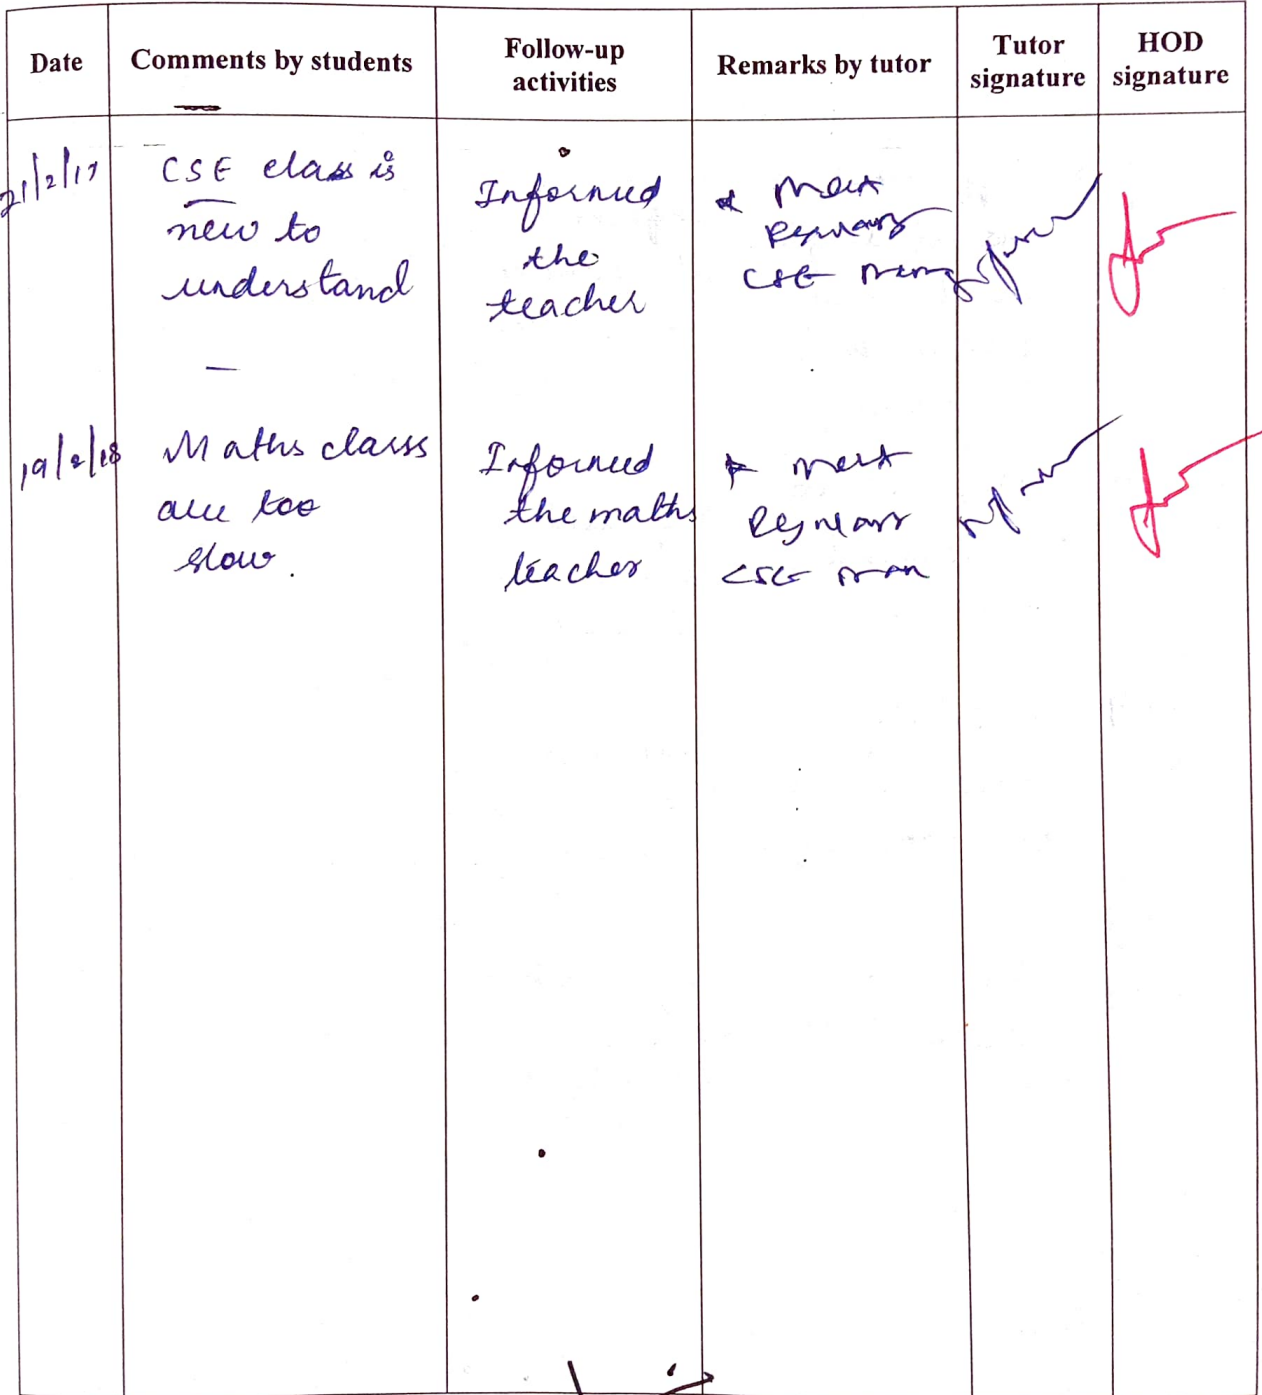 Date
Comments by students
Follow-up
activities
Remarks by tutor
Tutor
signature
HOD
signature
21/2/17
CSE class is
new to
understand
Informed
the
teacher
CSE
19/2/18
Maths classs
are too
slow.
Informed
the maths
teacher